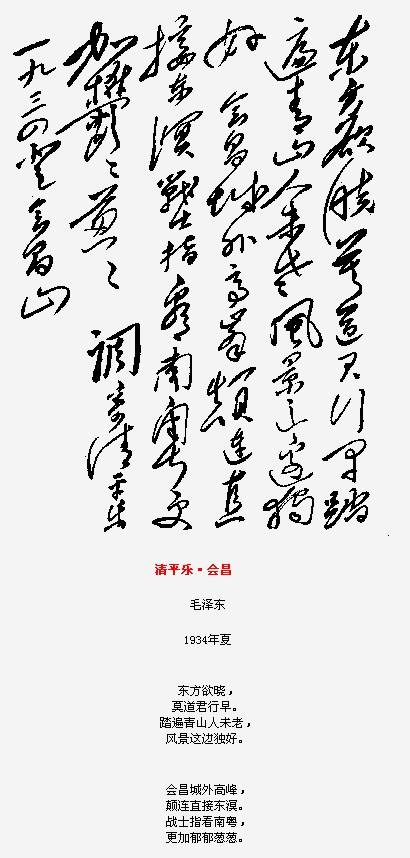 東方欲曉莫道君行早踏
遍青山人未老風景这邊獨
好會昌城外高峯顛連直
接東溟戰士指看南粤更
加欝〻葱〻 調寄清平乐
一九三四登會昌山
清平乐·会昌
毛泽东
1934年夏
东方欲晓，
莫道君行早。
踏遍青山人未老，
风景这边独好。
会昌城外高峰，
颠连直接东溟。
战士指看南粤，
更加郁郁葱葱。